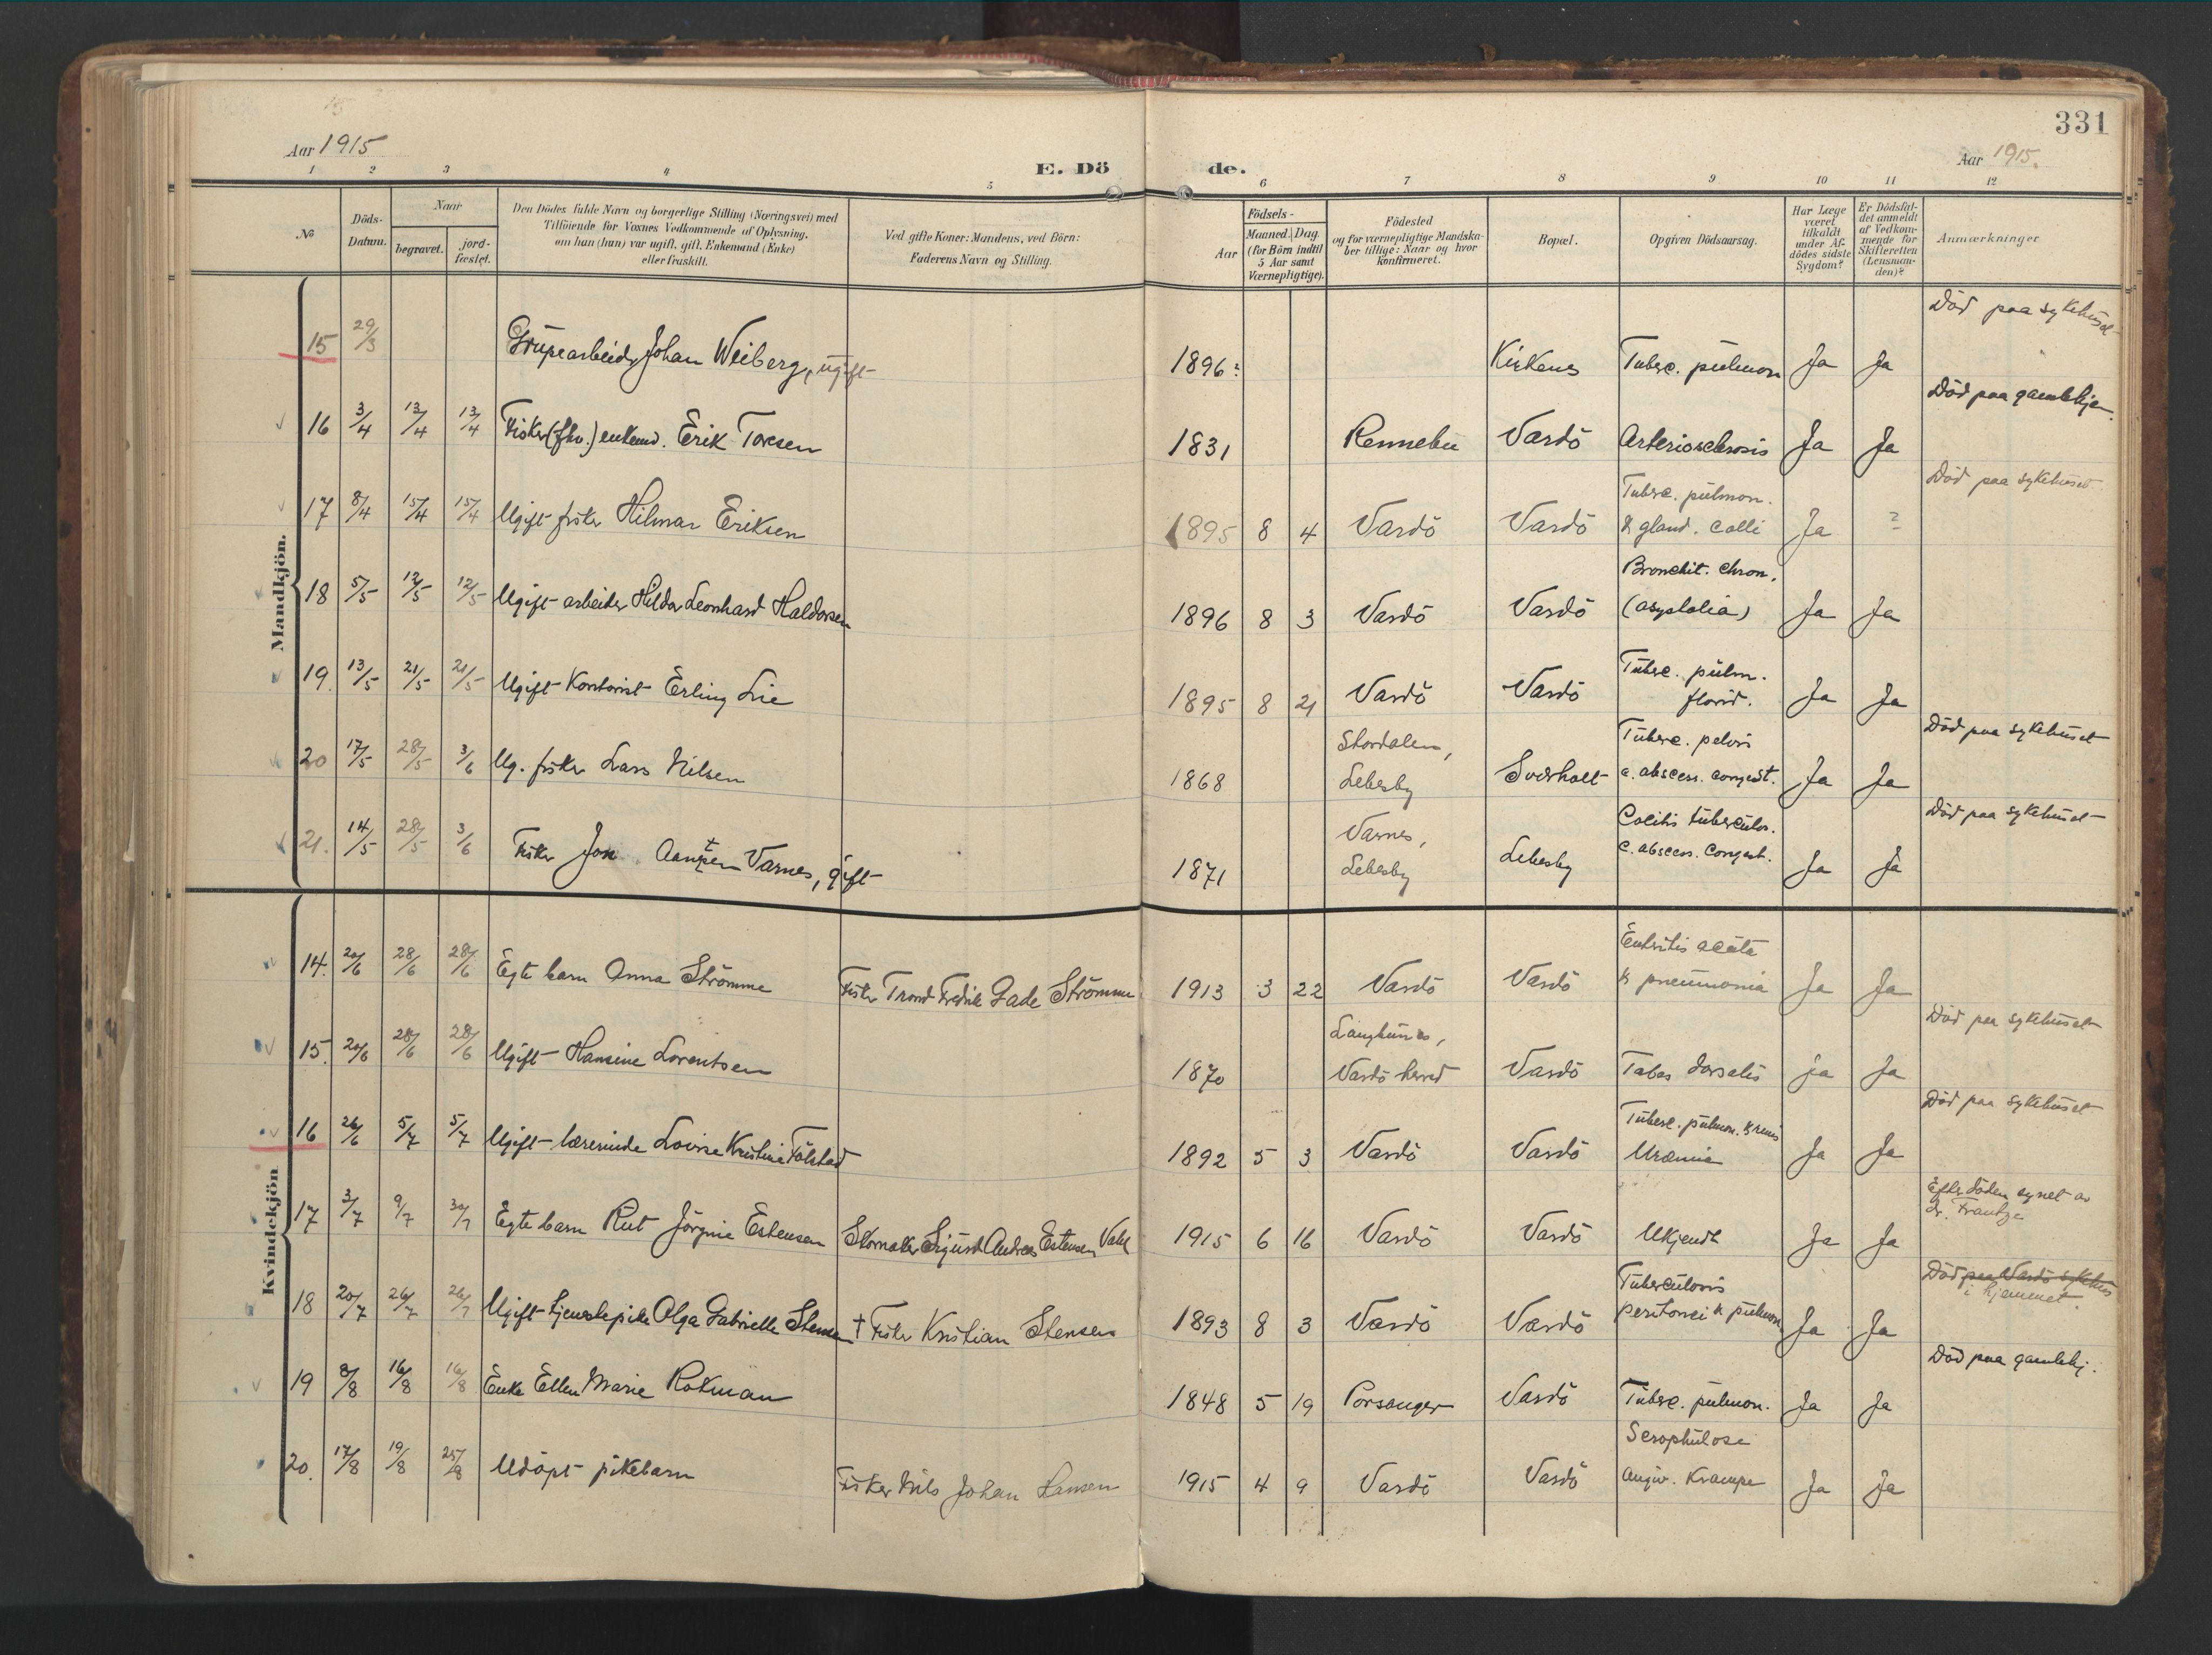 331
Aar 1915
E. Dö
de.
Aar 1915.
1 2 3 4 5 6 7 8 9 10 11 12
№
Döds-Datum.
Naar
begravet.
jord-fæstet.
Den Dödes fulde Navn og borgerlige Stilling (Næringsvei) med
Tilföiende for Voxnes Vedkommende af Oplysning,
om han (hun) var ugift, gift, Enkemand (Enke)
eller fraskilt.
Ved gifte Koner: Mandens, ved Börn:
Faderens Navn og Stilling.
Födsels-
Aar
Maaned. Dag
(for Börn indtil
5 Aar samt
Værnepligtige).
Födested
og for værnepligtige Mandska-
ber tillige: Naar og hvor
konfirmeret.
Bopæl.
Opgiven Dödsaarsag.
Har Læge
været
tilkaldt
under Af-
dödes sidste
Sygdom?
Er Dödsfal-
det anmeldt
af Vedkom-
mende for
Skifteretten
(Lensman-
den)?
Anmærkninger
Mandkjön.
Död paa sykehuset
15 29/3 Johan Weiberg, ugift 1896: Kirkenes Tuberc. pulmon Ja Ja
Död paa gamlehje.
16 3/4 13/4 13/4 Fisker (fhv.) enkem. Erik Toresen 1831 Rennebu Vardö Arteriosclerosis Ja Ja
Död paa sykehuset
Tuberc. pulmon.
17 8/4 15/4 15/4 Ugift fisker Hilmar Eriksen 1895 8 4 Vardö Vardö & gland. colli Ja ?
Bronchit. chron.
18 5/5 12/5 12/5 Ugift arbeider Hildor Leonhard Haldorsen 1896 8 3 Vardö Vardö (asystolia) Ja Ja
Tuberc. pulm.
19. 13/5 21/5 21/5 Ugift Kontorist Erling Lie 1895 8 21 Vardö Vardö florid. Ja Ja
Stordalen, Tuberc. pelvis Död paa sykehuset
20 17/5 28/5 3/6 Ug. fisker Lars Nilsen 1868 Lebesby Sværholt c. abscess. congest. Ja Ja
Varnes, Coxitis tuberculos. Död paa sykehuset
21. 14/5 28/5 3/6 Fisker Jon Varnes, gift 1871 Lebesby Lebesby c. abscess. congest. Ja Ja
Kvindekjön
Enteritis acuta
14. 20/6 28/6 28/6 Egte barn Anna Strömme Fisker Trond Fredrik Gade Strömme 1913 3 22 Vardö Vardö & pneumonia Ja Ja
Langbunes, Död paa sykehuset
15. 20/6 28/6 28/6 Ugift Hansine Lorentsen 1870 Vardö herred Vardö Tabes dorsalis ja Ja
Tuberc. pulmon. & renis Död paa sykehuset
16 26/6 5/7 5/7 Ugift lærerinde Lovise Kristine Tölstad 1892 5 3 Vardö Vardö Uræmia Ja Ja
Efter döden synet av
dr. Frantze
17 3/7 9/7 30/7 Egte barn Rut Jörgine Estensen Skomaker Sigurd Andreas Estensen Vahl 1915 6 16 Vardö Vardö Ukjendt Ja Ja
Tuberculosis Död paa Vardö sykehus
i hjemmet.
18 20/7 26/7 26/7 Ugift tjenestepike Olga Gabrielle Stensen † Fisker Kristian Stensen 1893 8 3 Vardö Vardö peritonei & pulmon. Ja Ja
Död paa gamlehj.
19 8/8 16/8 16/8 Enke Ellen Marie Rotman 1848 5 19 Porsanger Vardö Tuberc. pulmon. Ja Ja
Scrophulose
20. 17/8 19/8 25/8 Udöpt pikebarn Fisker Nils Johan Hansen 1915 4 9 Vardö Vardö Krampe Ja ja